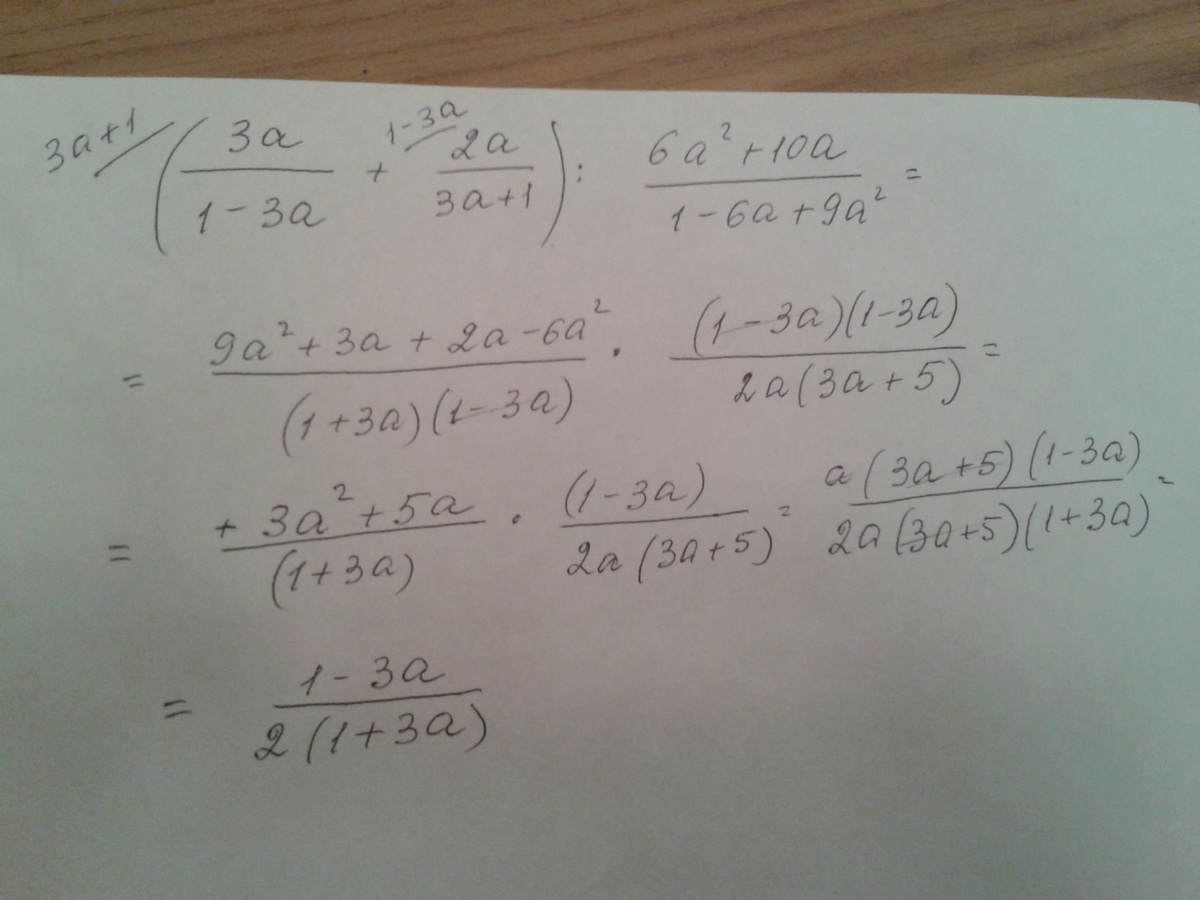 3a+1/ (3a/(1-3a) + 1-3a/ 2a/(3a+1)) : (6a²+10a)/(1-6a+9a²) =
= (9a²+3a+2a-6a²)/((1+3a)(1-3a)) · ((1-3a)(1-3a))/(2a(3a+5)) =
= (+3a²+5a)/((1+3a)) · ((1-3a))/(2a(3a+5)) = (a(3a+5)(1-3a))/(2a(3a+5)(1+3a)) =
= (1-3a)/(2(1+3a))